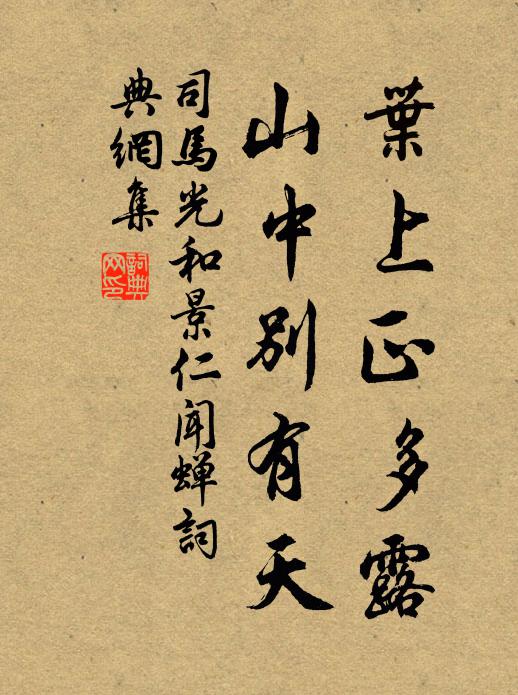 葉上正多露
山中別有天
司馬光和景仁聞蝉詞
典網集
詞典網印